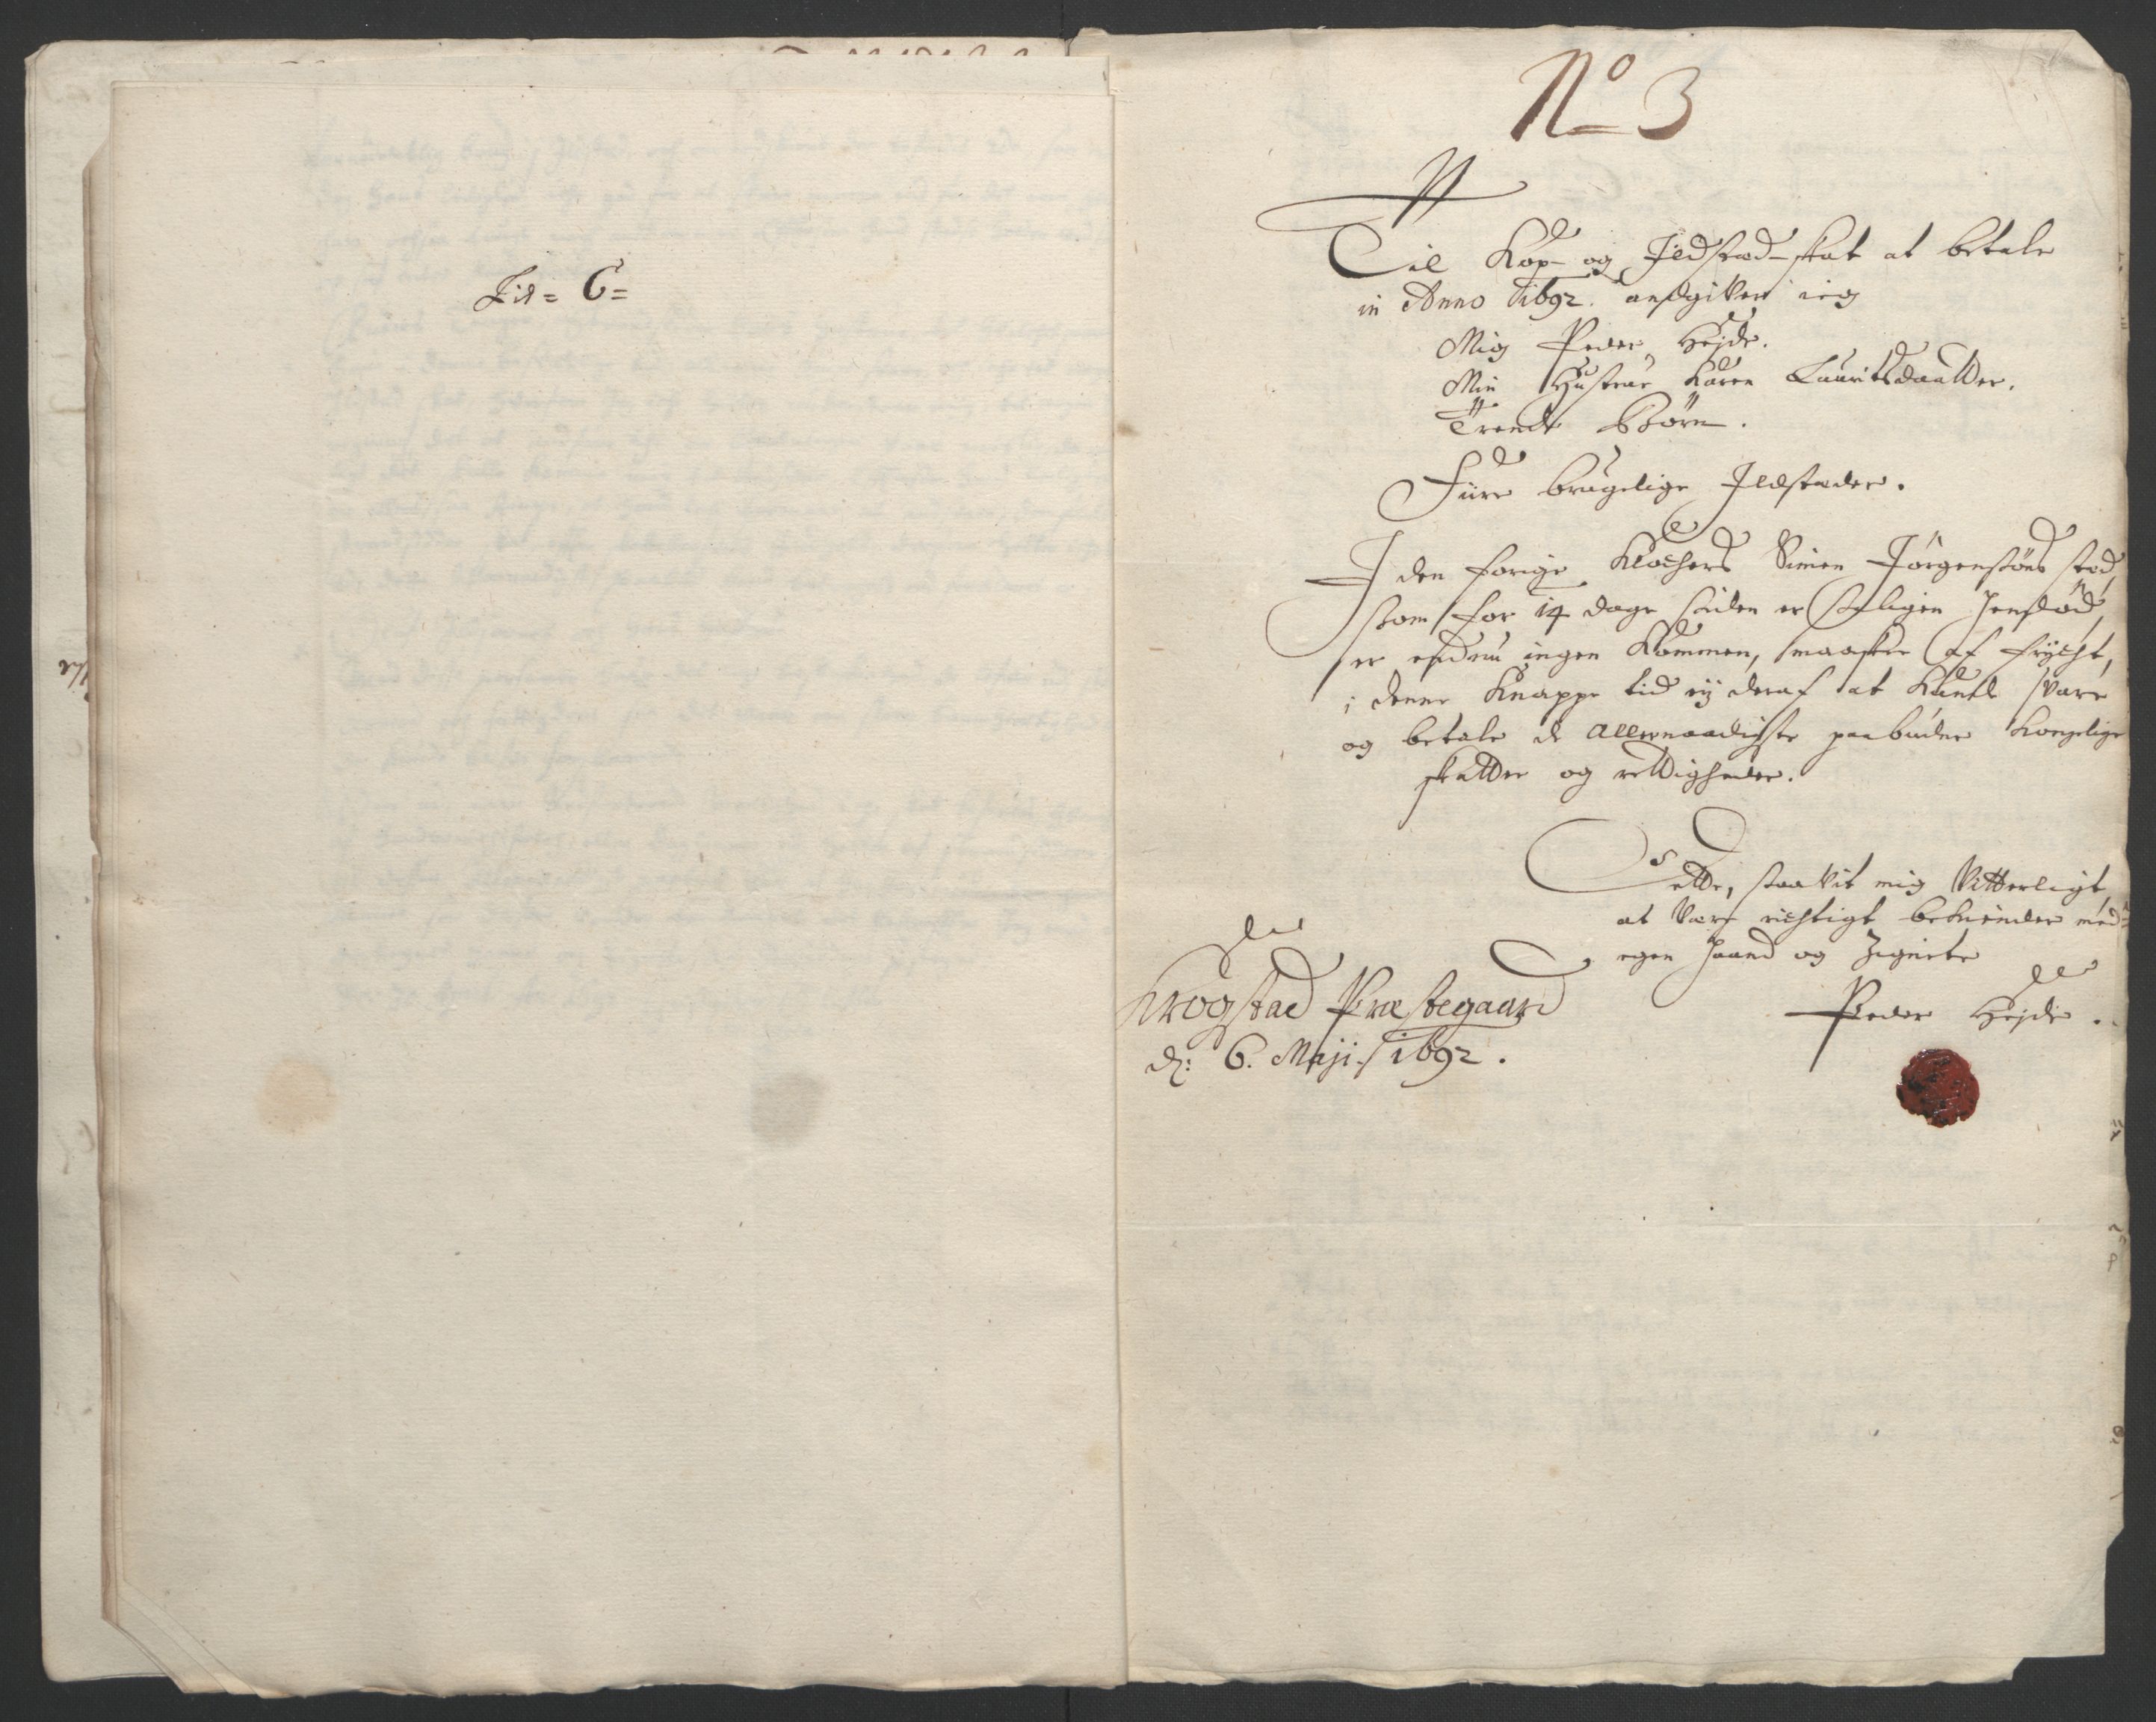 Lit= C=
No 3
Til Kop- og Ildstad-skat at betale
in Anno 1692. angiver ieg
Mig Peder Hejde.
Min Hustrue Karen Lauritsdaatter.
Trende Børn.
Fiire brugelige Ildsteder.
I den forige Klochers Simen Jørgensøns sted,
som for 14 dage siden er saligen hensød,
er endnu ingen kommen, maaskee af frycht,
i denne knappe tid ej deraf at kunde svare
og betale de allernaadigste paabudne Kongelige
skatter og rettigheder.
Dette, saavit mig vitterligt,
at være richtigt bekiender med
egen haand og Zignete
Krogstad Præstegaard
d: 6. Maji 1692.
Peder Hejde.